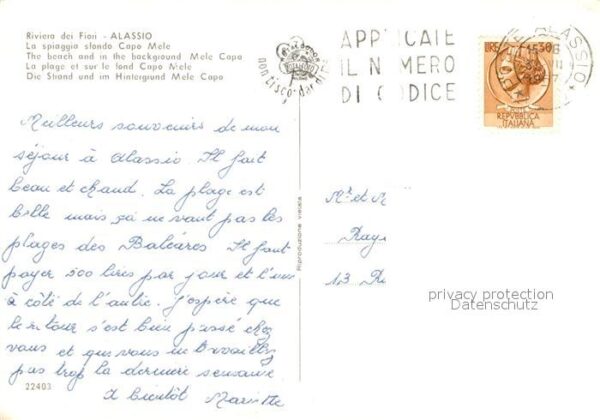 Riviera dei Fiori - ALASSIO
La spiaggia sfondo Capo Mele
The beach and in the background Mele Capo
La plage et sur le fond Capo Mele
Die Strand und im Hintergrund Mele Capo
non ti scordar di
APPLICATE
IL NUMERO
DI CODICE
ALASSIO
LIRE 30
REPVBBLICA
ITALIANA
Meilleurs souvenirs de mon
séjour à Alassio. Il fait
beau et chaud. La plage est
belle mais ça ne vaut pas les
plages des Baléares Il faut
payer 500 lires par jour et l'un
à côté de l'autre. J'espère que
le retour s'est bien passé chez
vous et que vous ne travaillez
pas trop la dernière semaine
A bientôt
Mr et M
Ray
13 R
Riproduzione vietata
privacy protection
Datenschutz
22403